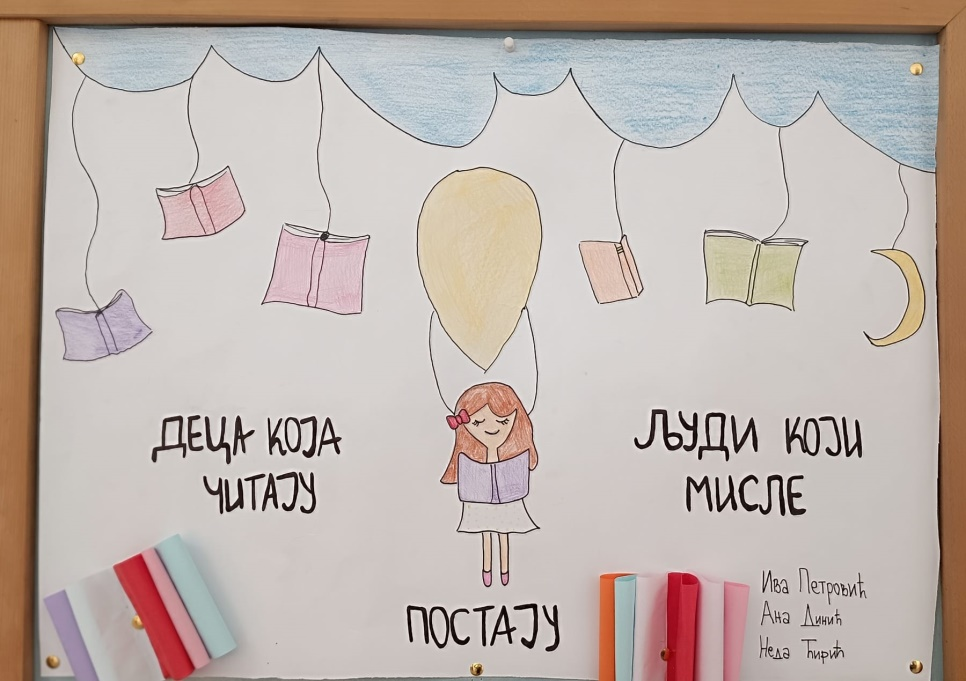 ДЕЦА КОЈА
ЧИТАЈУ
ПОСТАЈУ
ЉУДИ КОЈИ
МИСЛЕ
Ива Петровић
Ана Динић
Неда Ћирић